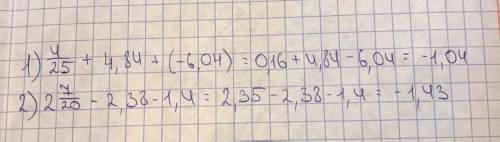 1) 4/25 + 4,84 + (-6,04) = 0,16 + 4,84 - 6,04 = -1,04
2) 2 7/20 - 2,38 - 1,4 = 2,35 - 2,38 - 1,4 = -1,43